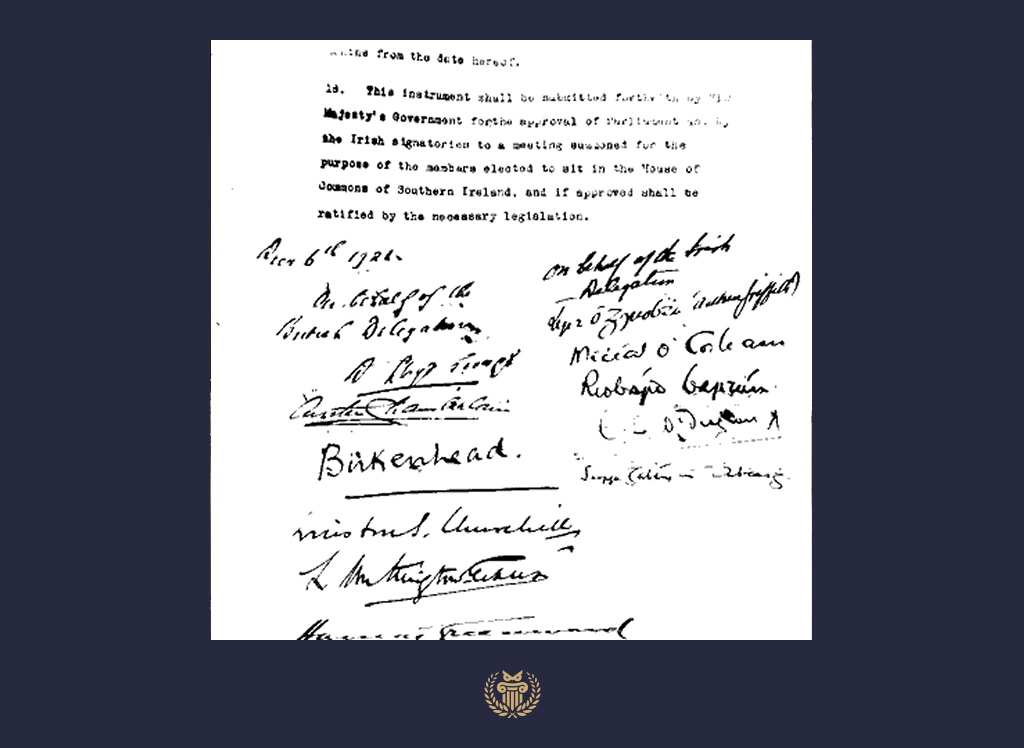 from the date hereof.
18. This instrument shall be submitted forthwith by His
Majesty's Government forthe approval of Parliament and by
the Irish signatories to a meeting summoned for the
purpose of the members elected to sit in the House of
Commons of Southern Ireland, and if approved shall be
ratified by the necessary legislation.
Decr 6th 1921.
On behalf of the
British Delegation
D Lloyd George
Austen Chamberlain
Birkenhead.
Winston S. Churchill
L Worthington Evans
Hamar Greenwood
On behalf of the Irish
Delegation
Art Ó (Arthur Griffith)
Micéal O
Riobárd